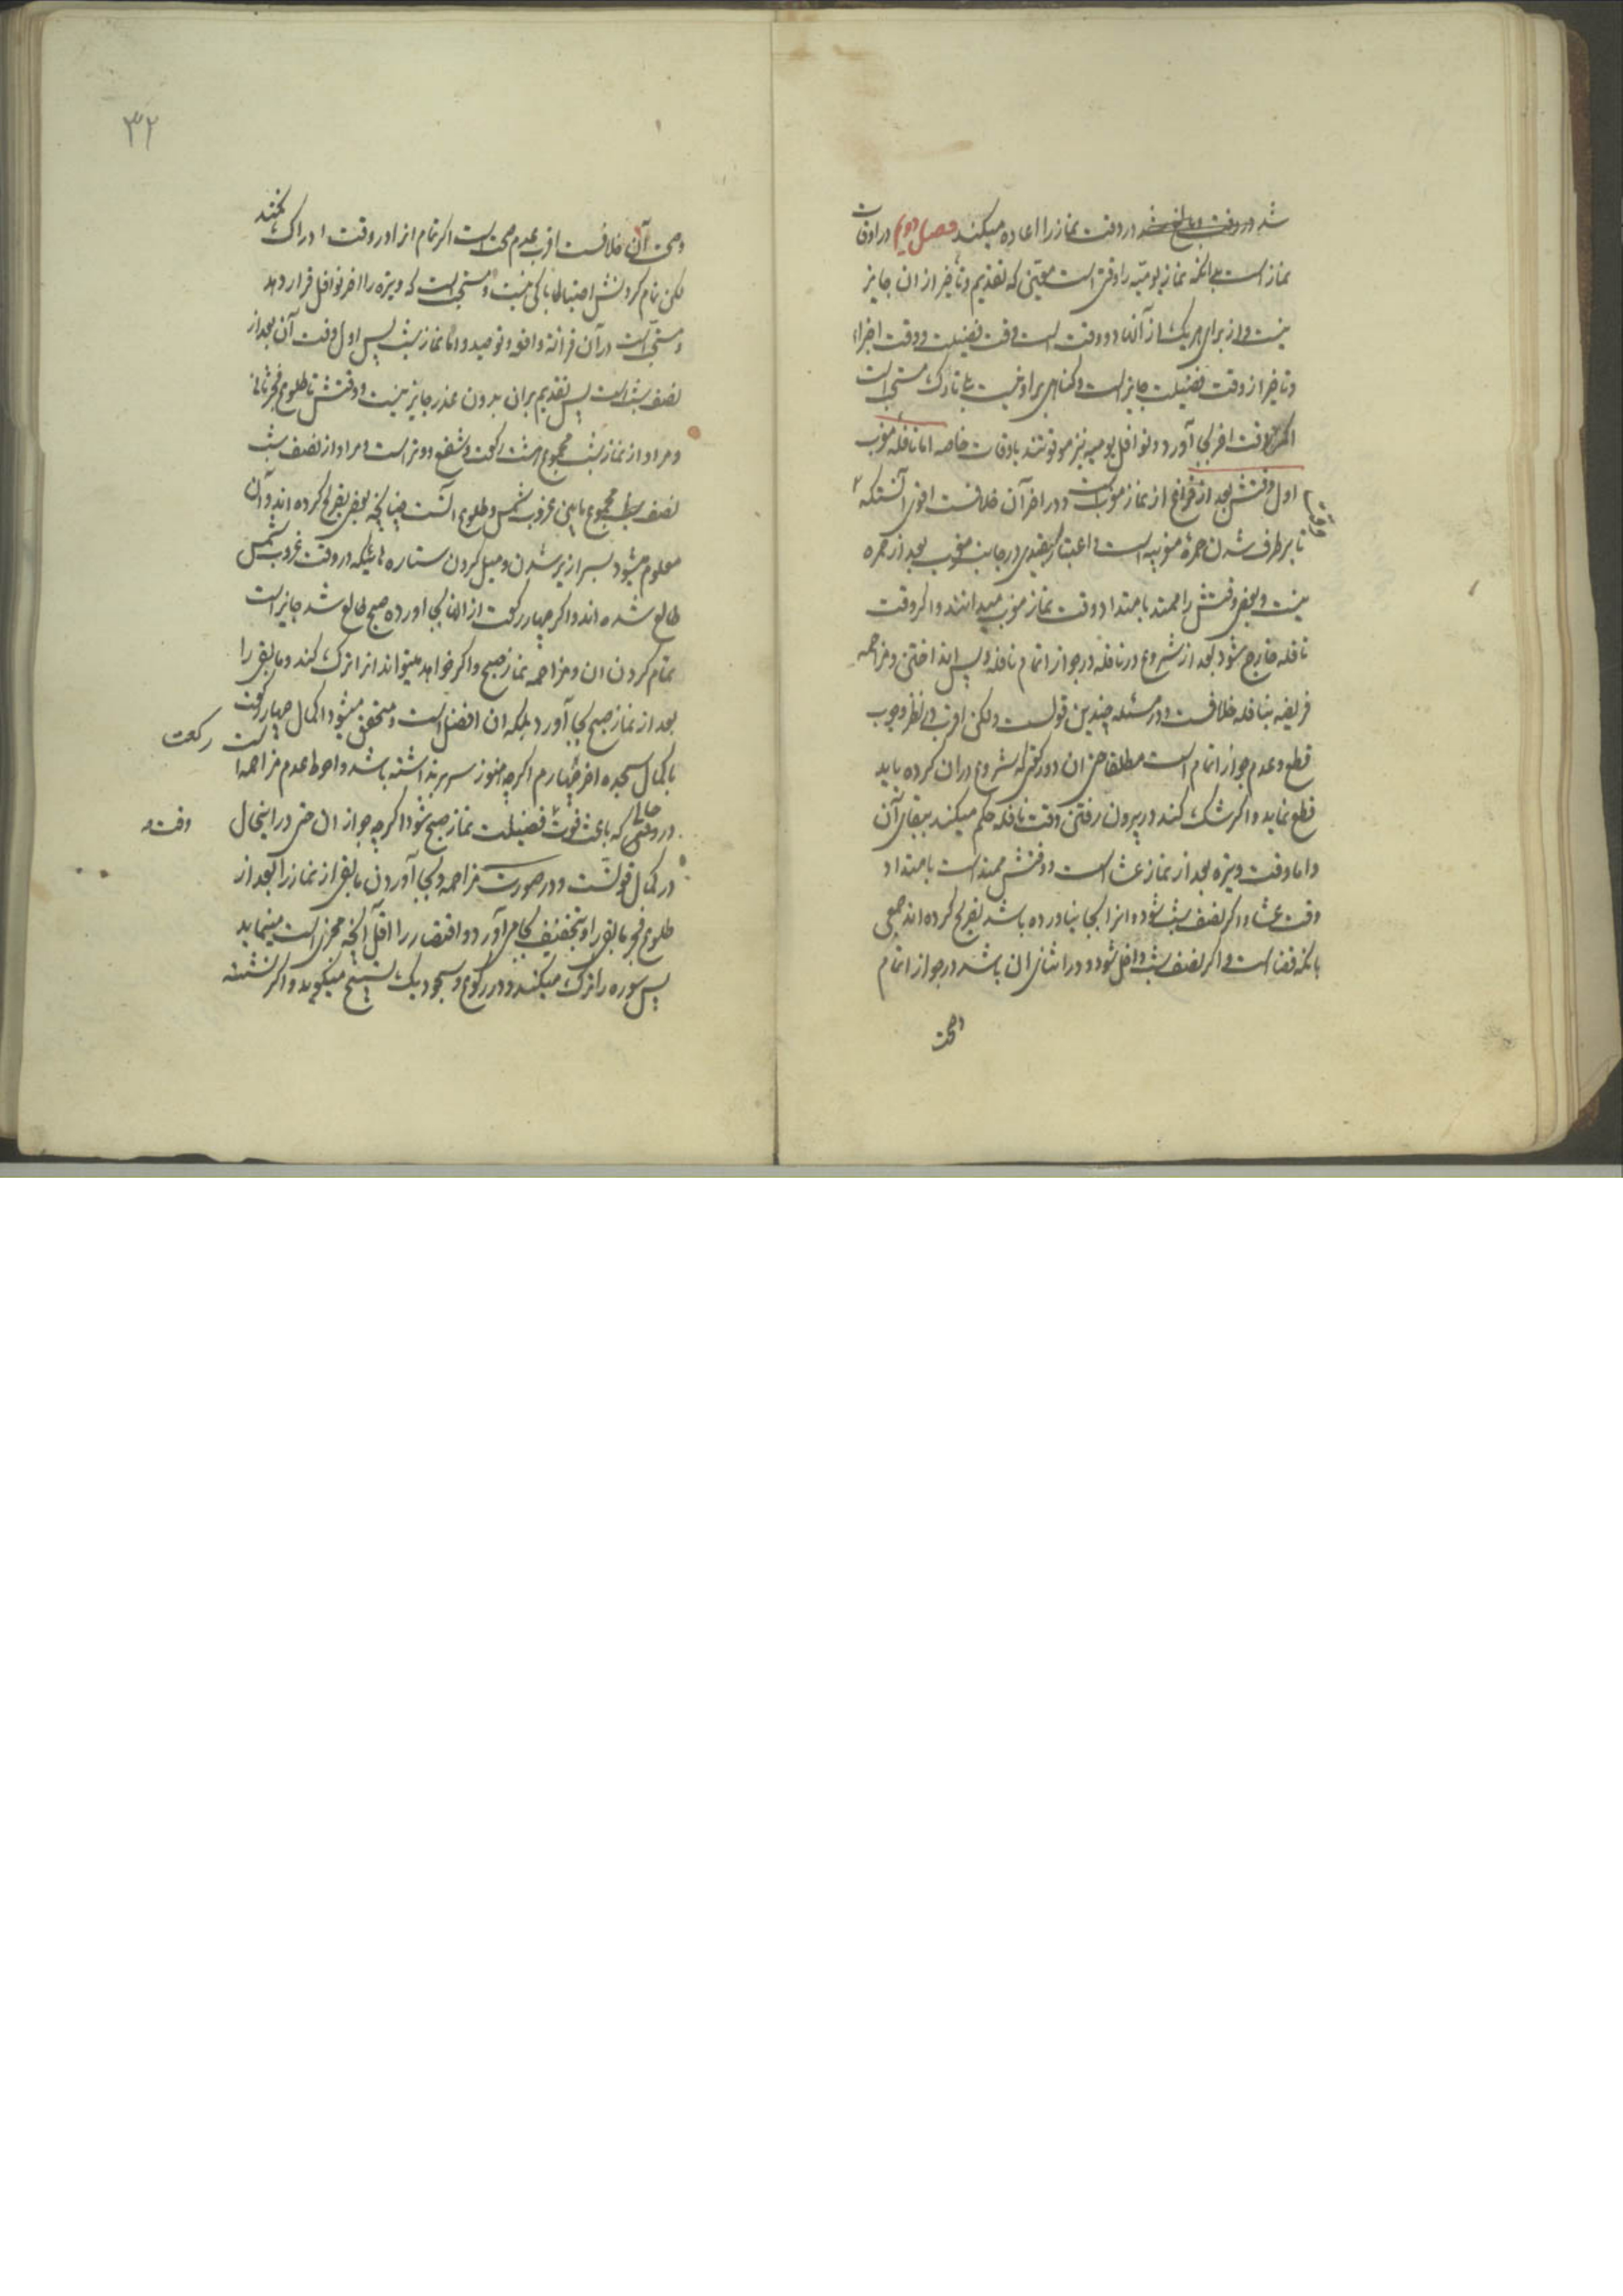 شد در وقت و مانع شد در وقت نماز را اعاده میکند فصل دویم در اوقات
نماز است بدانکه نماز یومیه را وقتی است معین که تقدیم و تاخیر از ان جایز
نیست و از برای هر یک از آنها دو وقت است وقت فضیلت و وقت اجزاء
و تاخیر از وقت فضیلت جایز است و کناهی بر او نیست بلی تارک مستحب است
اکر در وقت اخر بجا آورد و نوافل یومیه نیز موقوتند باوقات خاصه اما نافله مغرب
اول وقتش بعد از فراغ از نماز مغرب است و در اخر آن خلافست اقوی آنستکه
تا برطرف شدن حمرهٔ مغربیه است و اعتبار بسفیدی در جانب مغرب بعد از حمره
نیست و بعضی وقتش را ممتد بامتداد وقت نماز مغرب میدانند و اکر وقت
نافله خارج شود بعد از شروع در نافله در جواز اتمام نافله و پس انداختن و مزاحمه
فریضه بنافله خلافست و در مسئله چندین قولست ولکن اقرب در نظر وجوب
قطع و عدم جواز اتمام است مطلقا حتی ان دو رکعتی که شروع در ان کرده باید
قطع نماید و اکر شک کند در بیرون رفتن وقت نافله حکم میکند ببقای آن
و اما وقت وتیره بعد از نماز عشا است و وقتش ممتد است بامتداد
وقت عشا و اکر نصف شب شود و انرا بجا نیاورده باشد تصریح کرده اند جمعی
بانکه قضا است و اکر نصف شب داخل شود و در اثنای ان باشد در جواز اتمام
وصحت
۳۲
وصحت آن خلافست اقرب عدم صحت است اکر تمام انرا در وقت ادراک نکند
لکن تمام کردنش احتیاطا باکی نیست و مستحب است که وتیره را اخر نوافل قرار دهد
و مستحب است در آن قرائة واقعه و توحید و اما نماز شب پس اول وقت آن بعد از
نصف شب است پس تقدیم بر ان بدون عذر جایز نیست و وقتش تا طلوع فجر ثانی
و مراد از نماز شب مجموع هشت رکعت و شفع و وتر است و مراد از نصف شب
نصف مجموع مابین غروب شمس و طلوع آنست چنانچه بعضی تصریح کرده اند و آن
معلوم میشود بسرازیر شدن و میل کردن ستاره هائیکه در وقت غروب شمس
طالع شده اند و اکر چهار رکعت از انها بجا اورده صبح طالع شد جایز است
تمام کردن ان و مزاحمه نماز صبح و اکر خواهد میتواند انرا ترک کند و مابقی را
بعد از نماز صبح بجا آورد بلکه ان افضل است و متحقق میشود اکمال چهار رکعت
باکمال سجده اخر چهارم اکرچه هنوز سر بر نداشته باشد و احوط عدم مزاحمه است
رکعت
در وقتی که باعث فوت فضیلت نماز صبح شود اکرچه جواز ان حتی در اینحال
حالی
وقت
در کمال قوتست و در صورت مزاحمه و بجا آوردن مابقی از نماز را بعد از
طلوع فجر مابقی را بتخفیف بجا می آورد و اقتصار را اقل آنچه مجزی است مینماید
پس سوره را ترک میکند و در رکوع و سجود یک تسبیح میکوید و اکر نشسته